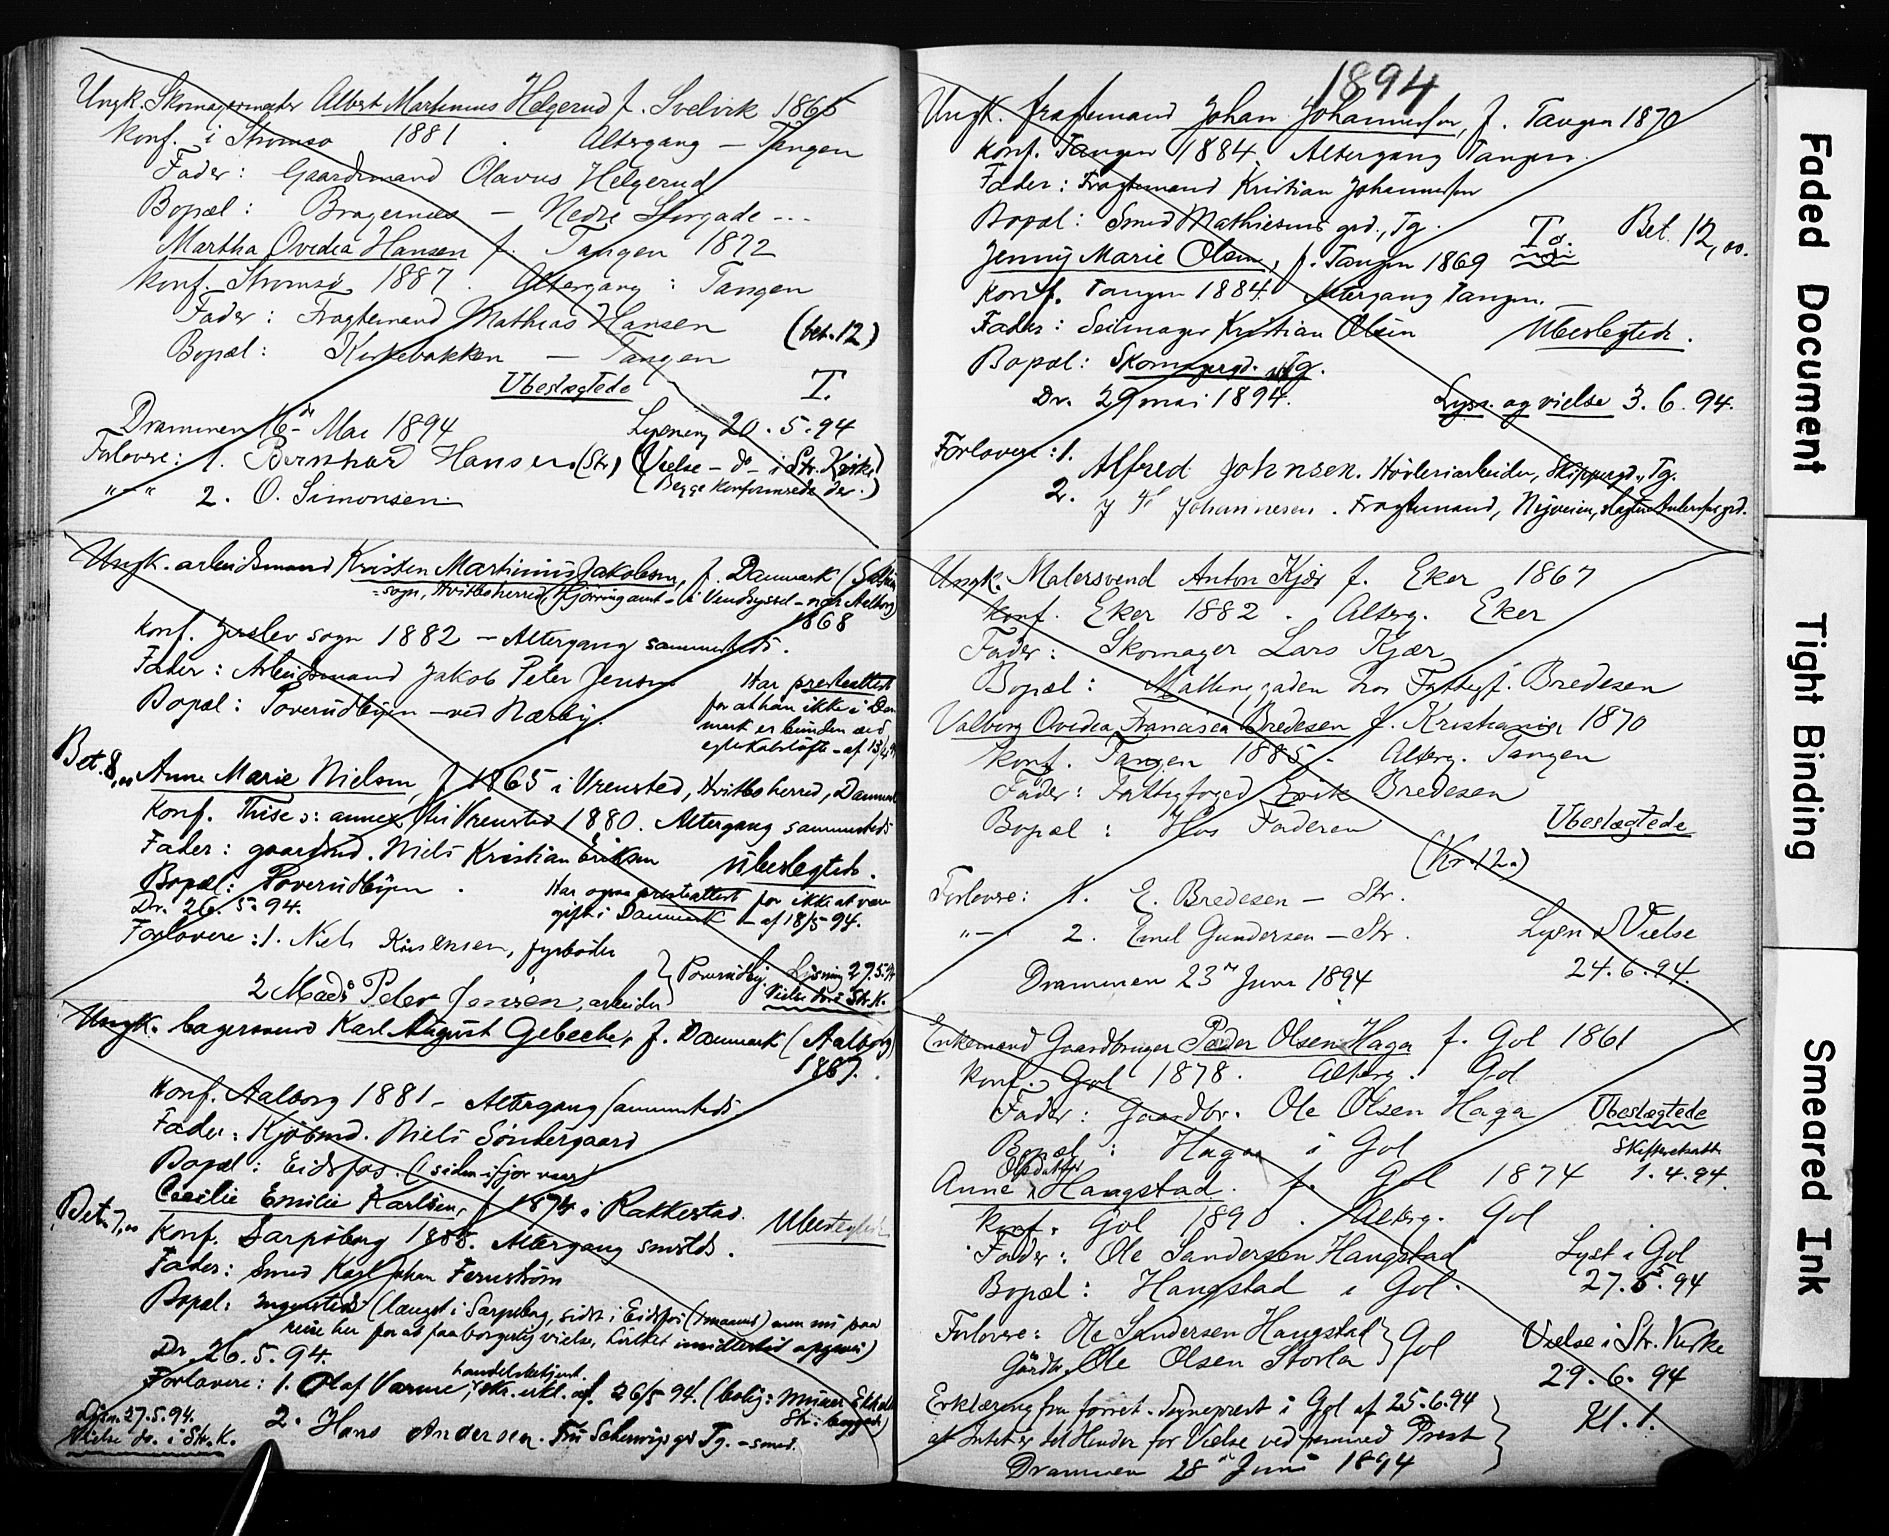 Ungk. Skomagermester Albert Martinius Helgerud f. Svelvik 1865
Konf. i Strømsø 1881. Altergang – Tangen
Fader: Gaardmand Olavus Helgerud
Bopæl: Bragernæs – Nedre Storgade ...
Martha Ovedia Hansen f. Tangen 1872
Konf. Strømsø 1887. Altergang: Tangen
Fader: Fragtemand Mathias Hansen (bet. 12)
Bopæl: Kirkebakken – Tangen
Ubeslægtede T.
Drammen 16de Mai 1894 Lysning 20.5.94
Forlovere: 1. Bernhard Hansen (Str) (Vielse – do – i Str. Kirke)
"–" 2. O. Simonsen (Begge konfirmerede der.)
Ungk. arbeidsmand Kristen Martinius Jakobsen, f. Danmark
sogn, Hvitboherred, Hjørring amt – i Vendsyssel – nær Aalborg)
1868
Konf. Jerslev sogn 1882 – Altergang sammesteds.
Fader: Arbeidsmand Jakob Peter Jensen
Bopæl: Poverudbyen – ved Nærby.
Har presteattest
for at han ikke i Dan
mark er bunden ved
egteskabsløfte – af 13/4 94
Bet. 8,00 Anne Marie Nielsen, f. 1865 i Vrensted, Hvitboherred, Danmark
Konf. Thise o: annex til Vrensted 1880. Altergang sammesteds
Fader: gaardmd. Niels Kristian Eriksen Ubeslegtede.
Bopæl: Poverudbyen.
Har ogsaa presteattest for ikke at være
gift i Danmark – af 18/5 94.
Dr. 26.5.94.
Forlovere: 1. Niels Kristensen, fyrbøder
2 Mads Peter Jensen, arbeider } Poverudbyen
Lysning 27.5.94
Vielse do i Str. K.
Ungk. bagersvend Karl August Gebecke, f. Danmark (Aalborg)
1867.
Konf. Aalborg 1881 – Altergang sammesteds
Fader: Kjøbmd. Niels Søndergaard
Bopæl: Eidsfos. (siden ifjor vaar)
Bet. 7,00 Cecilie Emilie Karlsen, f. 1874 i Rakkestad.
Konf. Sarpsborg 1888. Altergang smstds. Ubeslegtede
Fader: Smed Karl Johan Fernstrøm
Bopæl: Ingensteds (længst i Sarpsborg, sidst i Eidsfos (4 maaned) men nu paa
reise her for at faa borgerlig vielse, hvilket imidlertid opgives)
Dr. 26.5.94.
Forlovere: 1. Olaf Varme, handelsbetjent. Str. erkl. af 26/5 94. (bolig:
Str: bryggeri)
Lysn. 27.5.94.
2. Hans Andersen. Fru Schwigs gd Tg. – smed.
Vielse do. i Str. K.
1894
Ungk. fragtemand Johan Johannesen, f. Tangen 1870
Konf. Tangen 1884 Altergang Tangen.
Fader: Fragtemand Kristian Johannesen
Bopæl: Smed Mathiesens grd., Tg. To. Bet. 12,00.
Jenny Marie Olsen, f. Tangen 1869
Konf. Tangen 1884. Altergang Tangen. –
Fader: Seilmager Kristian Olsen Ubeslegtede.
Bopæl: Skomagergd. Tg.
Dr. 29 mai 1894. Lysn. og vielse 3.6.94.
Forlovere: 1. Alfred Johnsen. Høvleriarbeider, Skippergd., Tg.
2. Johannesen. Fragtemand, Nyveien, slagter Andersens grd.
Ungk. Malersvend Anton Kjær f. Eker 1867
Konf. Eker 1882. Alterg. Eker
Fader: Skomager Lars Kjær
Bopæl: Malteng gaden hos Fattigf. Bredesen
Valborg Ovedia Francisca Bredesen f. Kristiania 1870
Konf. Tangen 1885. Alterg. Tangen
Fader: Fattigfoged Erik Bredesen
Bopæl: Hos Faderen Ubeslægtede
(Kr 12.)
Forlovere: 1. E. Bredesen – Str.
"–" 2. Emil Gundersen – Str. Lysn. & Vielse
Drammen 23de Juni 1894 24.6.94.
Enkemand Gaardbruger Peder Olsen Haga f. Gol 1861
Konf. Gol 1878. Alterg. Gol
Fader: Gaardbr. Ole Olsen Haga Ubeslægtede
Bopæl: Haga i Gol Skifteretsatt.
Anne Olsdatter Haugstad. f. Gol 1874 1.4.94.
Konf. Gol 1890. Alterg. Gol
Fader: Ole Sandersen Haugstad Lyst i Gol
Bopæl: Haugstad i Gol. 27.5.94
Forlovere: Ole Sandersen Haugstad } Gol Vielse i Str. Kirke
Gårdbr. Ole Olsen Storla 29.6.94
Erklæring fra forret. Sogneprest i Gol af 25.6.94
at Intet er til Hinder for Vielse ved fremmed Prest Kl. 1.
Drammen 28de Juni 1894
Faded Document
Tight Binding
Smeared Ink